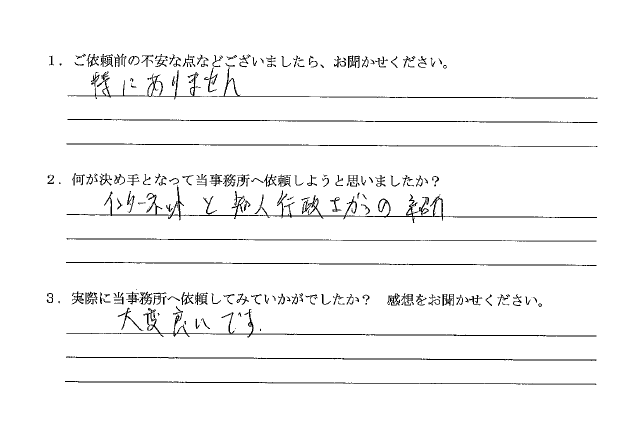 1．ご依頼前の不安な点などございましたら、お聞かせください。
特にありません
2．何が決め手となって当事務所へ依頼しようと思いましたか？
インターネットと知人行政士からの紹介
3．実際に当事務所へ依頼してみていかがでしたか？　感想をお聞かせください。
大変良いです．